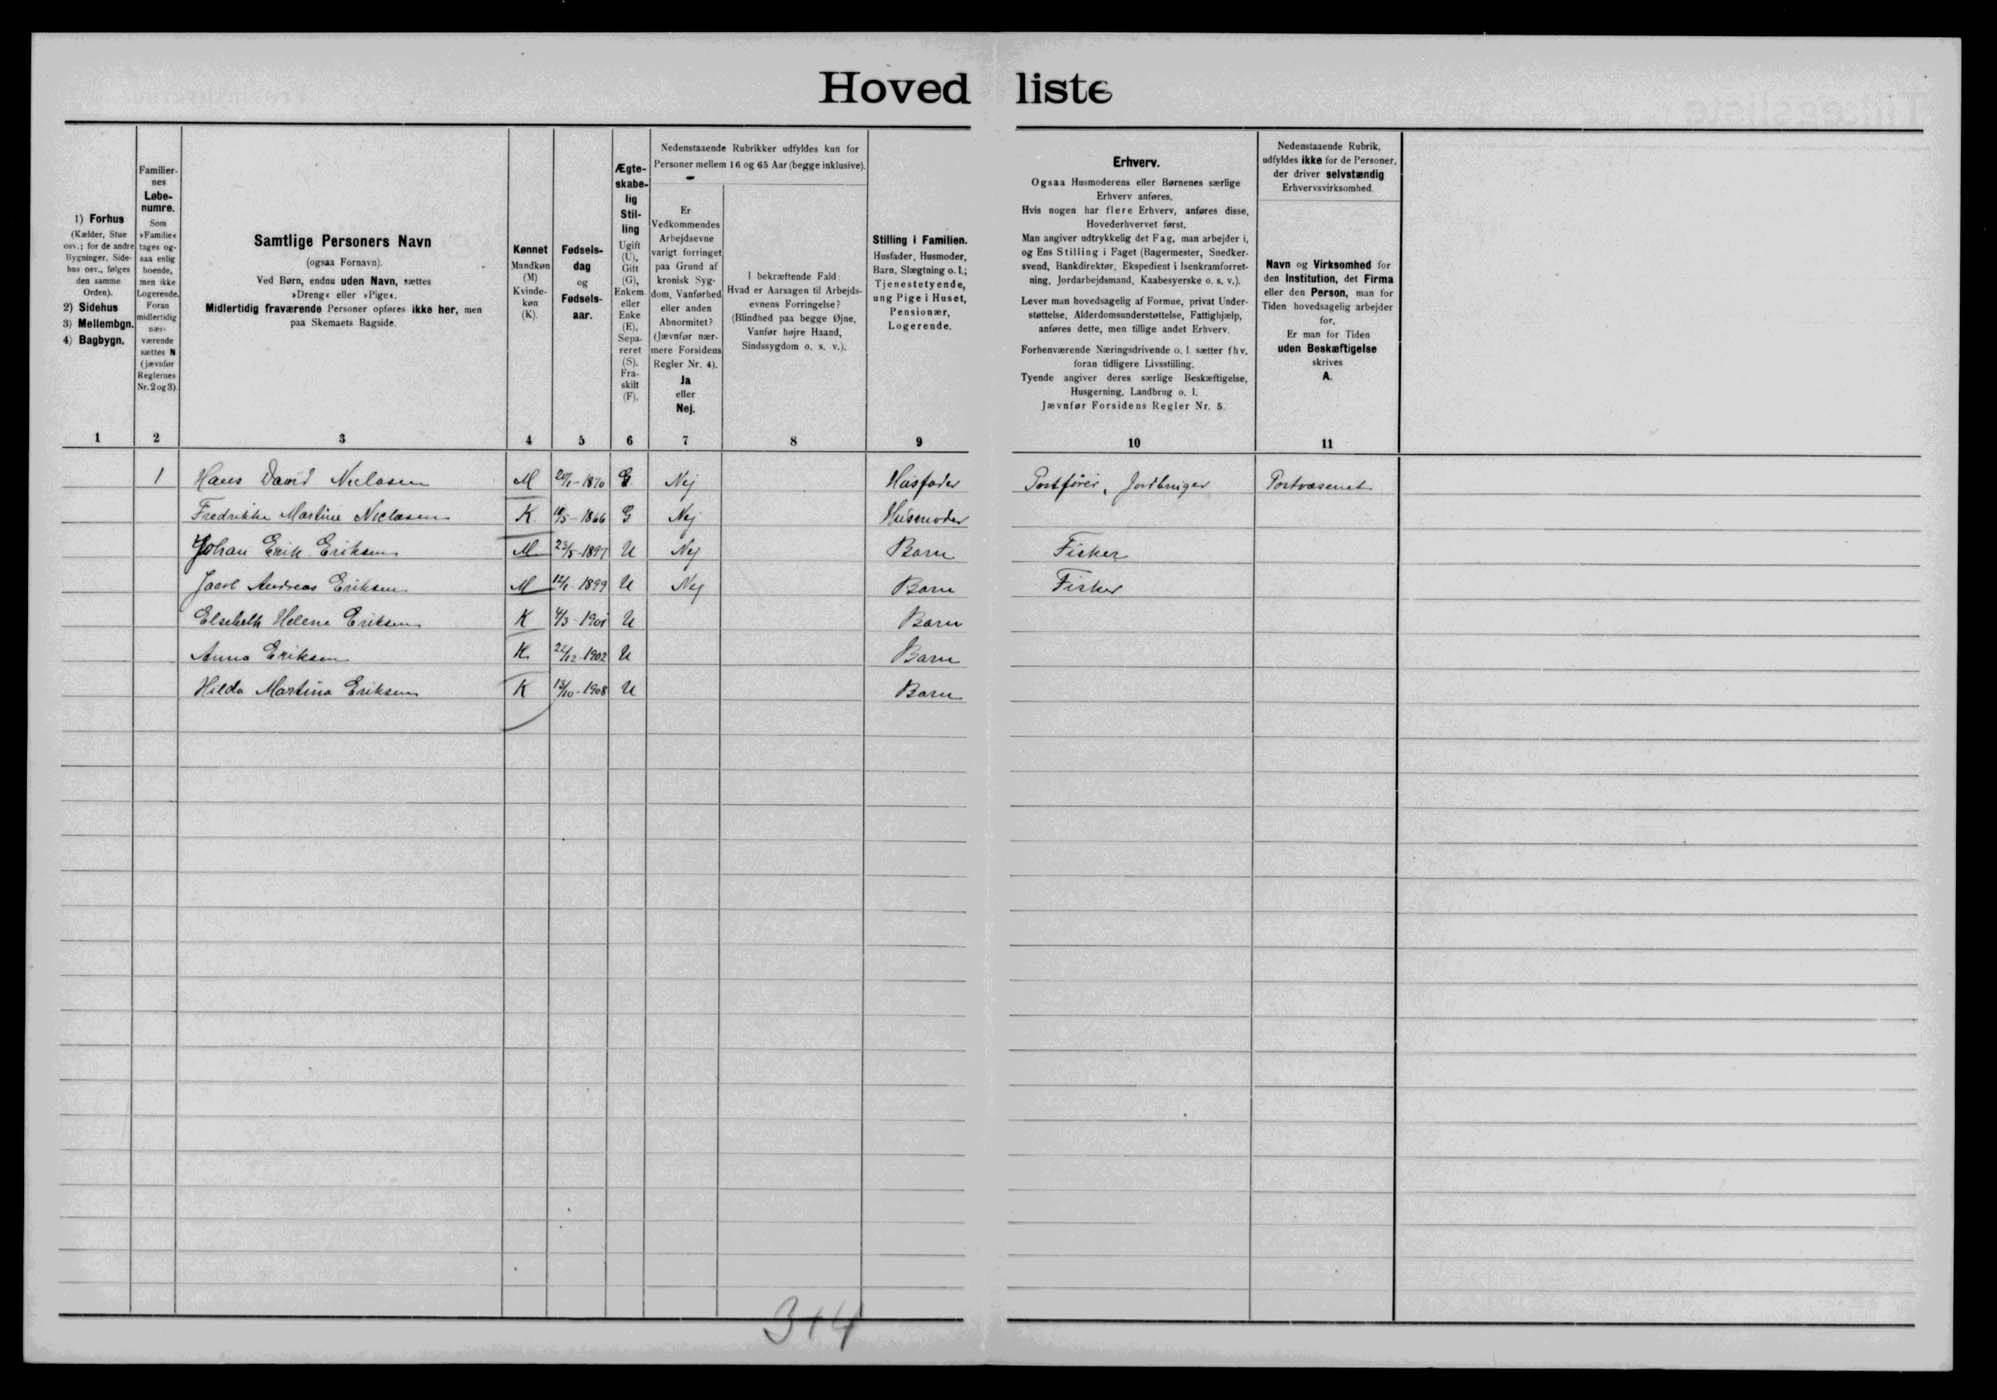 Hovedliste
1) Forhus
(Kælder, Stue
osv.; for de andre
Bygninger, Side-
hus osv., følges
den samme
Orden).
2) Sidehus
3) Mellembgn.
4) Bagbygn.
Familier-
nes
Løbe-
numre.
Som
»Familie«
tages og-
saa enlig
boende,
men ikke
Logerende.
Foran
midlertidig
nær-
værende
sættes N
(jævnfør
Reglernes
Nr. 2 og 3).
Samtlige Personers Navn
(ogsaa Fornavn).
Ved Børn, endnu uden Navn, sættes
»Dreng« eller »Pige«.
Midlertidig fraværende Personer opføres ikke her, men
paa Skemaets Bagside.
Kønnet
Mandkøn
(M)
Kvinde-
køn
(K).
Fødsels-
dag
og
Fødsels-
aar.
Ægte-
skabe-
lig
Stil-
ling
Ugift
(U),
Gift
(G),
Enkem.
eller
Enke
(E),
Sepa-
reret
(S),
Fra-
skilt
(F).
Nedenstaaende Rubrikker udfyldes kun for
Personer mellem 16 og 65 Aar (begge inklusive).
Er
Vedkommendes
Arbejdsevne
varigt forringet
paa Grund af
kronisk Syg-
dom, Vanførhed
eller anden
Abnormitet?
(Jævnfør nær-
mere Forsidens
Regler Nr. 4).
Ja
eller
Nej.
I bekræftende Fald:
Hvad er Aarsagen til Arbejds-
evnens Forringelse?
(Blindhed paa begge Øjne,
Vanfør højre Haand,
Sindssygdom o. s. v.).
Stilling i Familien.
Husfader, Husmoder,
Barn, Slægtning o. l.;
Tjenestetyende,
ung Pige i Huset,
Pensionær,
Logerende.
Erhverv.
Ogsaa Husmoderens eller Børnenes særlige
Erhverv anføres.
Hvis nogen har flere Erhverv, anføres disse,
Hovederhvervet først.
Man angiver udtrykkelig det Fag, man arbejder i,
og Ens Stilling i Faget (Bagermester, Snedker-
svend, Bankdirektør, Ekspedient i Isenkramforret-
ning, Jordarbejdsmand, Kaabesyerske o. s. v.).
Lever man hovedsagelig af Formue, privat Under-
støttelse, Alderdomsunderstøttelse, Fattighjælp,
anføres dette, men tillige andet Erhverv.
Forhenværende Næringsdrivende o. l. sætter fhv.
foran tidligere Livsstilling.
Tyende angiver deres særlige Beskæftigelse,
Husgerning, Landbrug o. l.
Jævnfør Forsidens Regler Nr. 5.
Nedenstaaende Rubrik,
udfyldes ikke for de Personer,
der driver selvstændig
Erhvervsvirksomhed.
Navn og Virksomhed for
den Institution, det Firma
eller den Person, man for
Tiden hovedsagelig arbejder
for.
Er man for Tiden
uden Beskæftigelse
skrives
A.
1 2 3 4 5 6 7 8 9 10 11
1 Hans David Niclasen M 1870 G Nej Husfader Postfører, Jordbruger Postvæsenet
Fredrikke Martine Niclasen K 1866 G Nej Husmoder
Johan Erik Eriksen M 23/5-1897 U Nej Barn Fisker
Jacob Andreas Eriksen M 12/1-1899 U Nej Barn Fisker
Elsebeth Helene Eriksen K 4/3-1901 U Barn
Anna Eriksen K 22/12-1902 U Barn
Hilda Martina Eriksen K 13/10-1908 U Barn
3+4